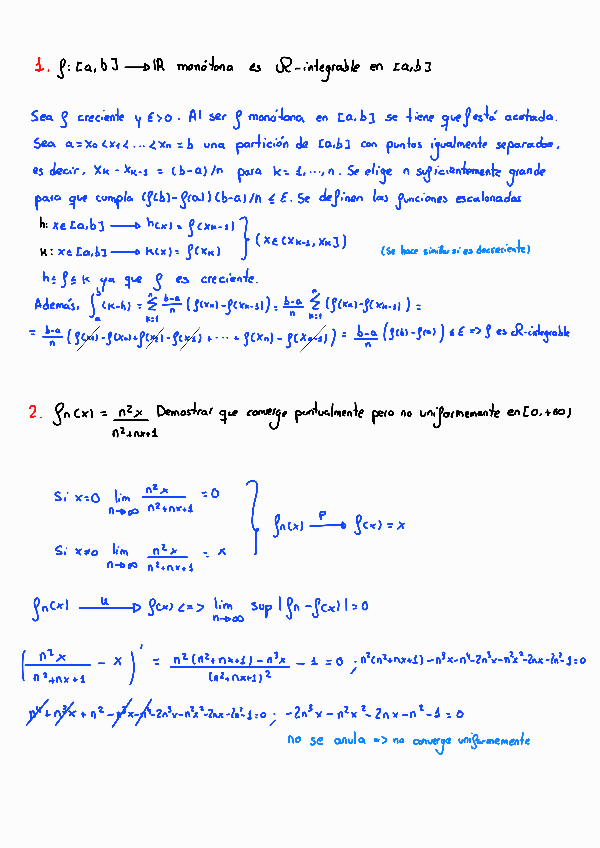 1. f: [a,b] → ℝ monótona es R-integrable en [a,b]
Sea f creciente y ε>0. Al ser f monótona en [a,b] se tiene que f está acotada.
Sea a=x₀<x₁<...<xₙ=b una partición de [a,b] con puntos igualmente separados,
es decir, xₖ - xₖ₋₁ = (b-a)/n para k=1,...,n. Se elige n suficientemente grande
para que cumpla (f(b)-f(a))(b-a)/n ≤ ε. Se definen las funciones escalonadas
h: x∈[a,b] → h(x) = f(xₖ₋₁)
κ: x∈[a,b] → κ(x) = f(xₖ) } (x∈(xₖ₋₁, xₖ]) (Se hace similar si es decreciente)
h ≤ f ≤ κ ya que f es creciente.
Además, ∫ₐᵇ (κ-h) = Σₖ₌₁ⁿ (b-a)/n (f(xₖ)-f(xₖ₋₁)) = (b-a)/n Σₖ₌₁ⁿ (f(xₖ)-f(xₖ₋₁)) =
= (b-a)/n (f(x₁)-f(x₀)+f(x₂)-f(x₁)+...+f(xₙ)-f(xₙ₋₁)) = (b-a)/n (f(b)-f(a)) ≤ ε => f es R-integrable
2. fn(x) = n²x/(n²+nx+1) Demostrar que converge puntualmente pero no uniformemente en [0,+∞)
Si x=0 lim n→∞ n²x/(n²+nx+1) = 0
Si x≠0 lim n→∞ n²x/(n²+nx+1) = x } fn(x) →ᵖ f(x) = x
fn(x) →ᵘ f(x) <=> lim n→∞ sup |fn - f(x)| = 0
(n²x/(n²+nx+1) - x)' = (n²(n²+nx+1)-n³x)/(n²+nx+1)² - 1 = 0 ; n²(n²+nx+1)-n³x-n⁴-2n³x-n²x²-2nx-2n²-1=0
n⁴+n³x+n²-n³x-n⁴-2n³x-n²x²-2nx-2n²-1=0 ; -2n³x-n²x²-2nx-n²-1=0
no se anula => no converge uniformemente